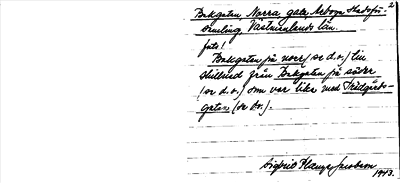 Bakgatan Norra gata Arboga stadsför- 2
samling, Västmanlands län.
foto!
Bakgatan på norr (se d.o.) till
skillnad från Bakgatan på söder
(se d.o.) som var lika med Trädgårds-
gatan (se do.).
Sigfrid Hauge Jacobson
1943.